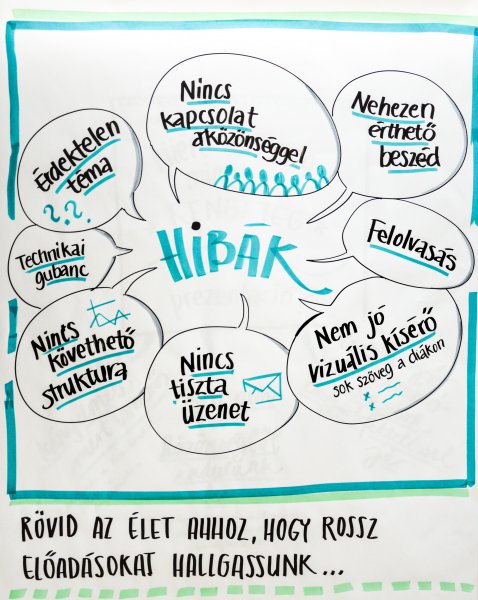 Nincs
kapcsolat
a közönséggel
Nehezen
érthető
beszéd
Érdektelen
téma
? ?
Technikai
gubanc
HIBÁK
Felolvasás
Nincs
követhető
struktura
Nincs
tiszta
üzenet
Nem jó
vizuális kísérő
sok szöveg a diákon
RÖVID AZ ÉLET AHHOZ, HOGY ROSSZ
ELŐADÁSOKAT HALLGASSUNK...